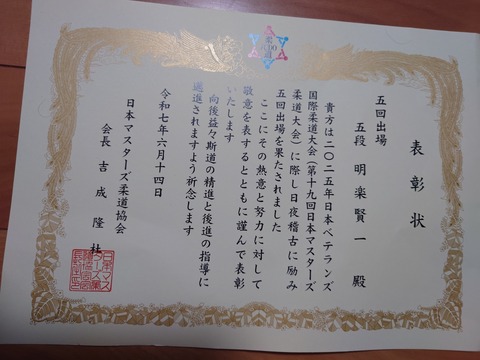 表彰状
五回出場
五段 明楽賢一 殿
貴方は二〇二五年日本ベテランズ
国際柔道大会(第十九回日本マスターズ
柔道大会)に際し日夜稽古に励み
五回出場を果たされました
ここにその熱意と努力に対して
敬意を表するとともに謹んで表彰
いたします
向後益々斯道の精進と後進の指導に
邁進されますよう祈念します
令和七年六月十四日
日本マスターズ柔道協会
会長 吉成隆杜